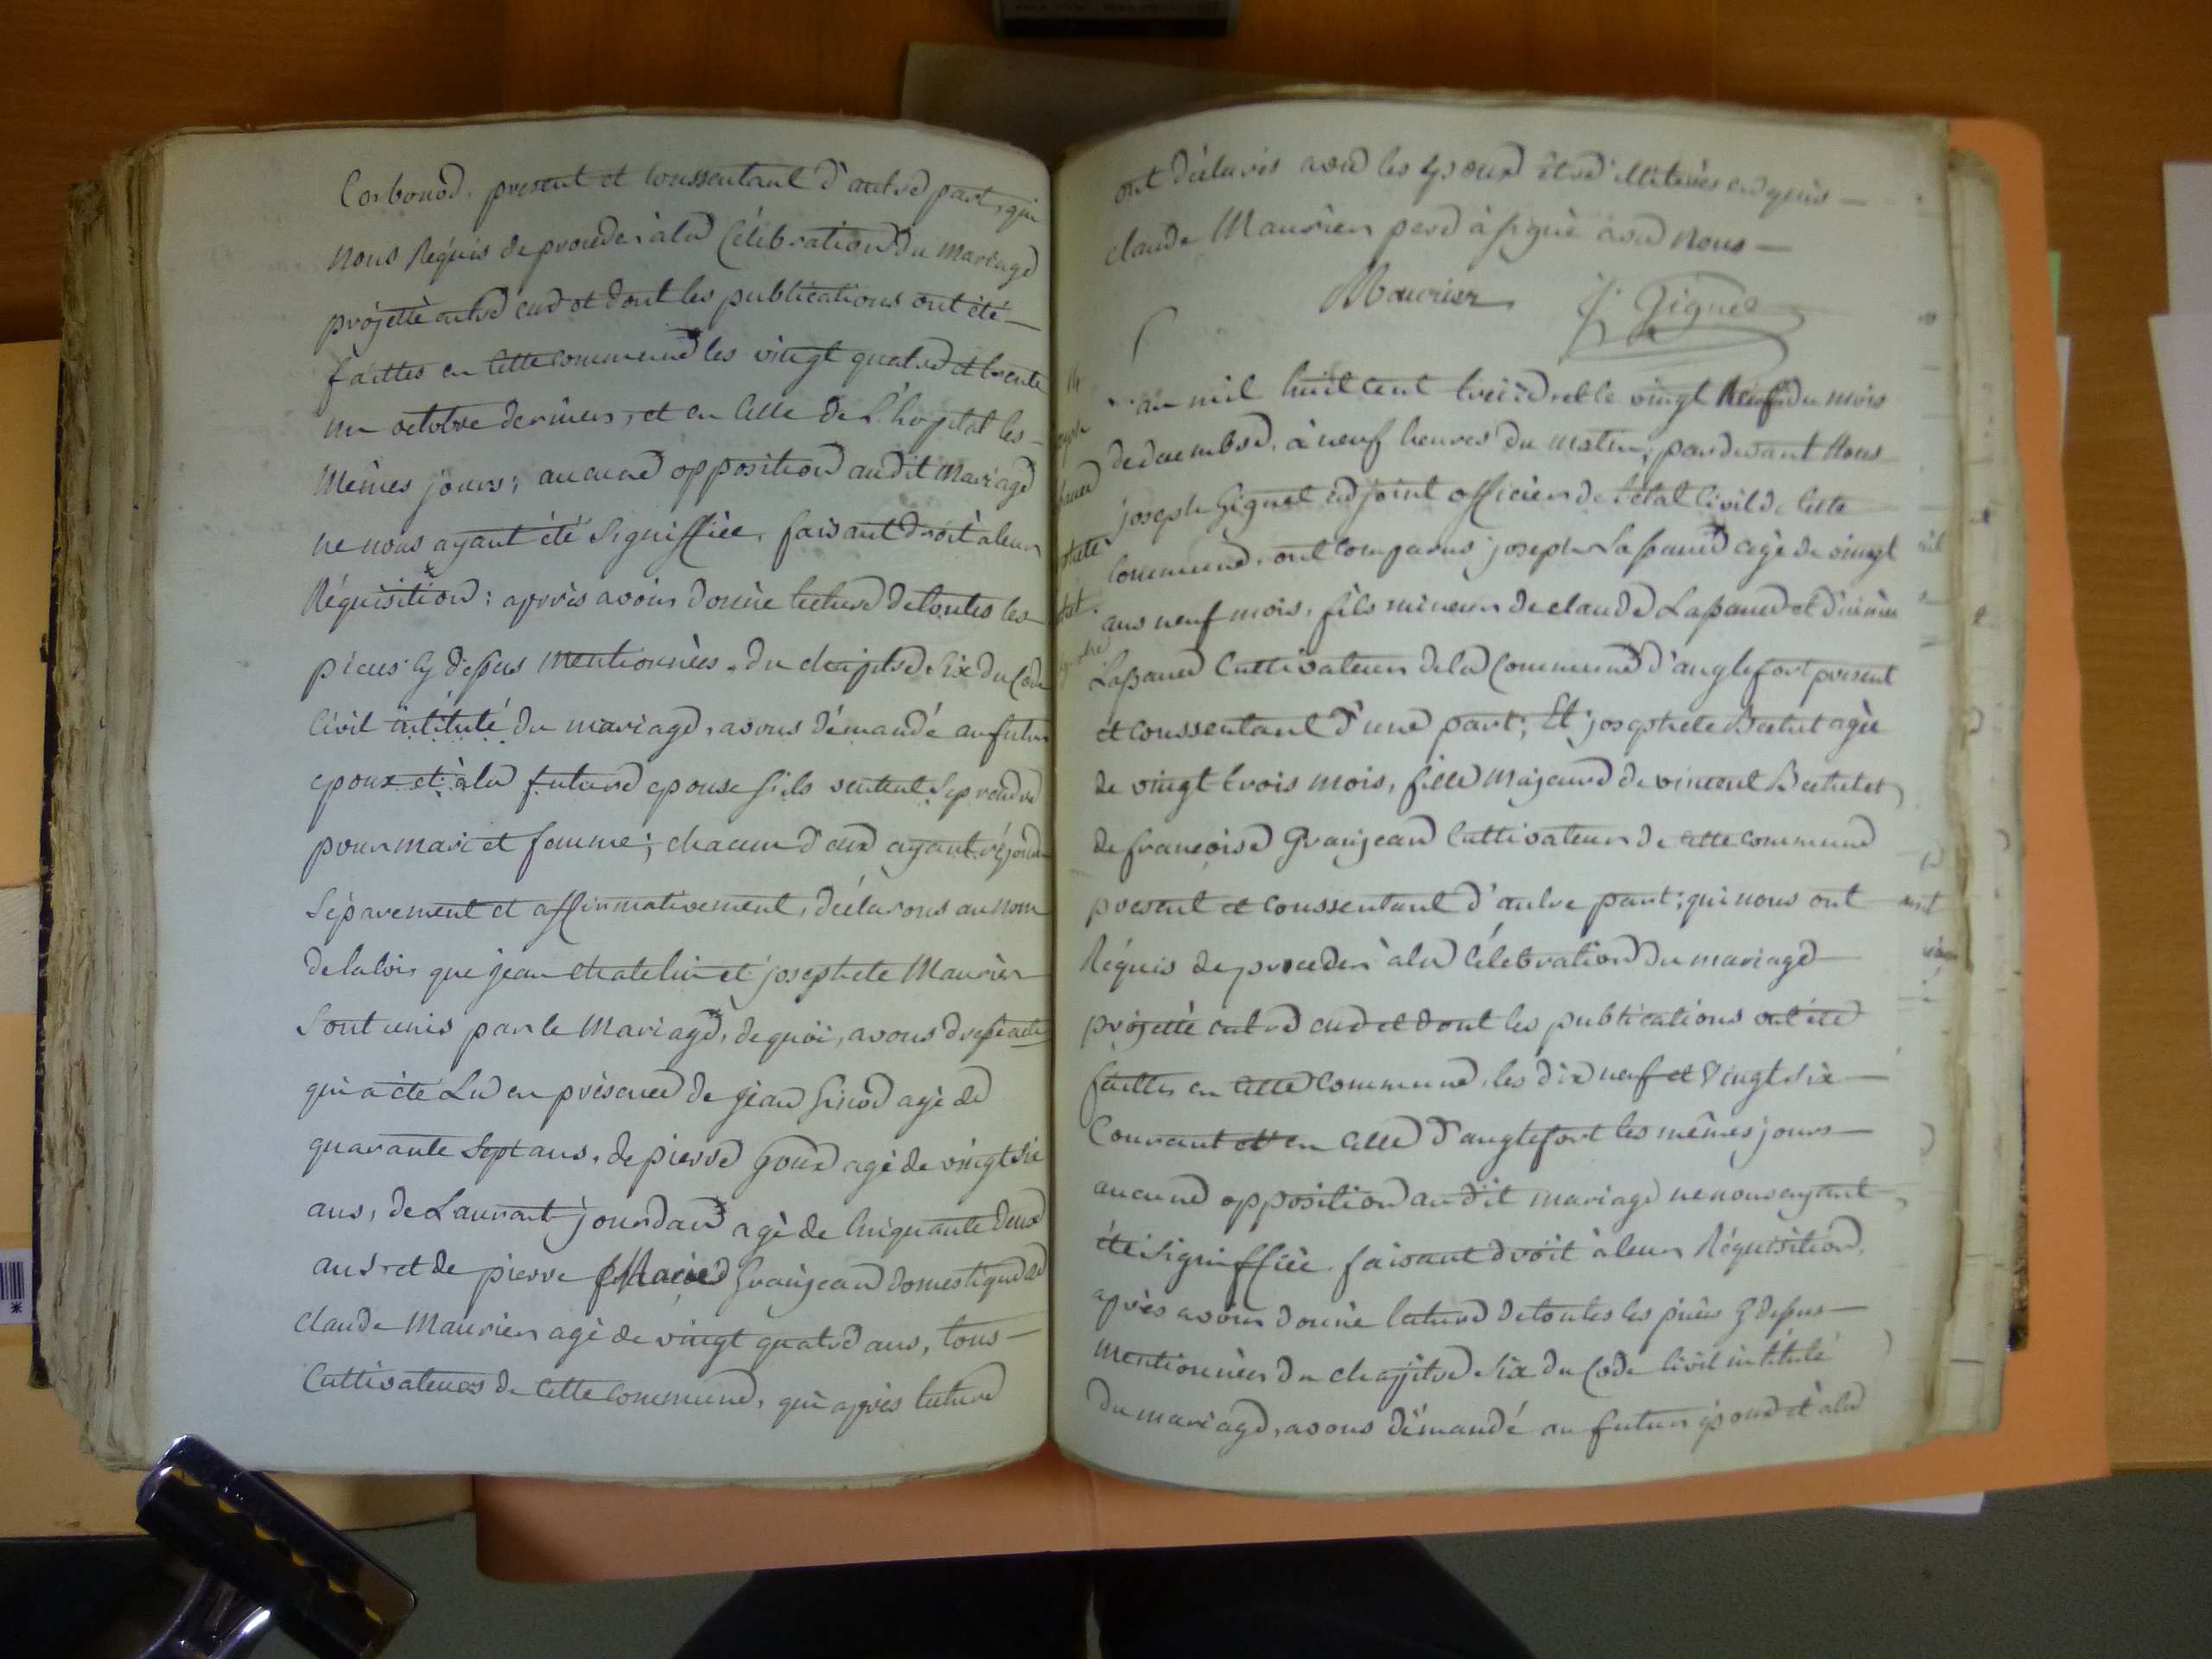 Corbonod. present et conssentant d'autre part, qui
nous Réquis de proceder à la Célébration du mariage
projettè entre eux et dont les publications ont été
faittes en cette commune les vingt quatre et trente
un octobre derniers, et en celle de L'hopital les
mêmes jours; aucune opposition audit Mariage
ne nous ayant été signiffiée, faisant droit à leur
Réquisition: apprès avoir donnèe lecture de toutes les
pieces cy dessus mentionnèes, du chapitre six du Code
Civil intitulé du mariage, avons démandé au futur
epoux et à la future epouse s'ils veulent se prendre
pour mari et femme; chacun d'eux ayant répondu
séparement et affirmativement, déclarons au nom
de la loi, que jean chatelin et josephete Maurier
sont unis par le Mariage, de quoi, avons dressé acte
qui a été Lu en présence de jean Ginod agè de
quarante sept ans, de pierre goux agè de vingt six
ans, de Laurant jourdan agè de cinquante deux
ans, et de pierre Marie Granjean domestique de
claude Maurier agè de vingt quatre ans, tous
Cultivateurs de cette Commune, qui apprès lecture
ont déclarés avec les Epoux être illiterés enquis
claude Maurier pere à signè avec nous
Maurier J. Gignet
an mil huit cent treize et le vingt Neuf du mois
de decembre, à neuf heures du matin, pardevant Nous
joseph Gignet adjoint officier de l'etat Civil de cette
commune, ont comparus joseph Lassaned agè de vingt
ans neuf mois, fils mineur de claude Lassaned et d'
Lassaned Cultivateur de la Commune d'anglefort present
et conssentant d'une part; Et josephete Bertet agèe
de vingt trois mois, fille majeure de vincent Bertet et
de francoise Granjean Cultivateur de cette commune
present et conssentant d'autre part; qui nous ont
Réquis de proceder à la Célébration du mariage
projettè entre eux et dont les publications ont été
faittes en cette commune, les dix neuf et vingt six
Courant et en celle d'anglefort les mêmes jours
aucune opposition audit mariage ne nous ayant
été signiffiée, faisant droit à leur Réquisition,
apprès avoir donnèe lecture de toutes les pièces cy dessus
mentionnèes du chapitre six du Code Civil intitulé
du mariage, avons démandé au futur époux et à la